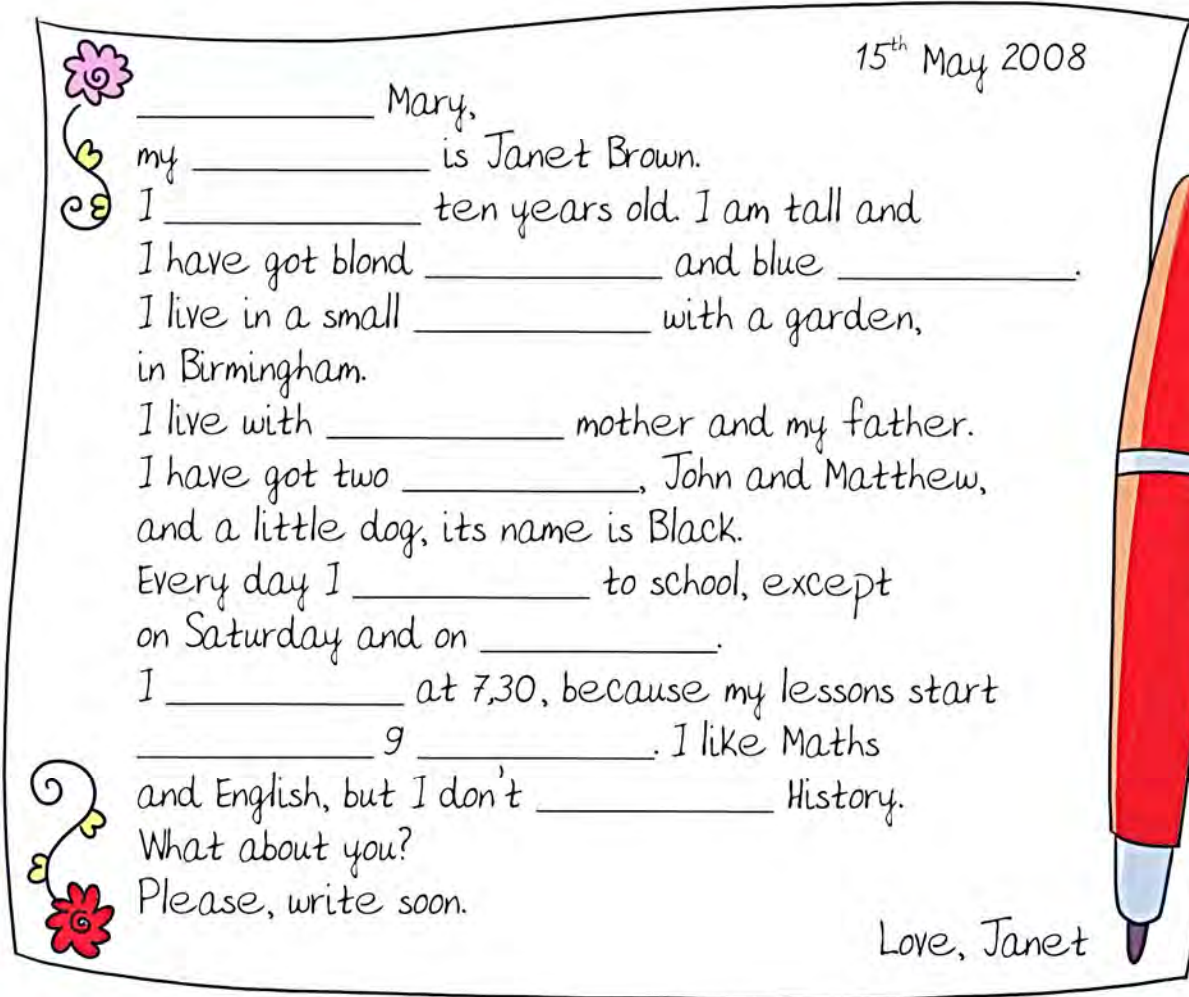 15th May 2008
____________ Mary,
my ____________ is Janet Brown.
I ____________ ten years old. I am tall and
I have got blond ____________ and blue ____________.
I live in a small ____________ with a garden,
in Birmingham.
I live with ____________ mother and my father.
I have got two ____________, John and Matthew,
and a little dog, its name is Black.
Every day I ____________ to school, except
on Saturday and on ____________.
I ____________ at 7,30, because my lessons start
____________ 9 ____________. I like Maths
and English, but I don't ____________ History.
What about you?
Please, write soon.
Love, Janet